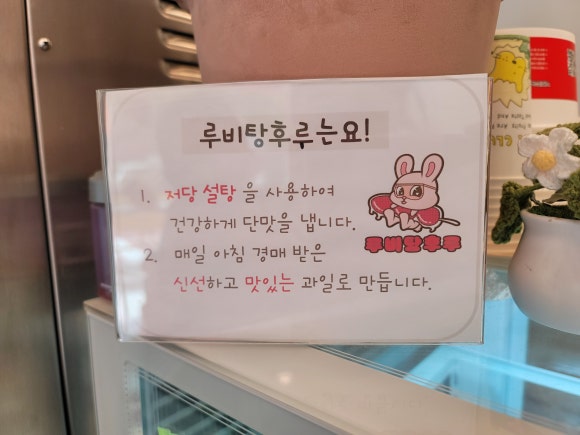 루비탕후루는요!
1. 저당 설탕 을 사용하여
건강하게 단맛을 냅니다.
2. 매일 아침 경매 받은
신선하고 맛있는 과일로 만듭니다.
루비탕후루